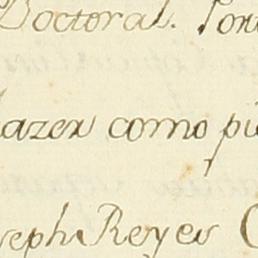 Doctoral. Pon
azer como pi
seph Reyes C